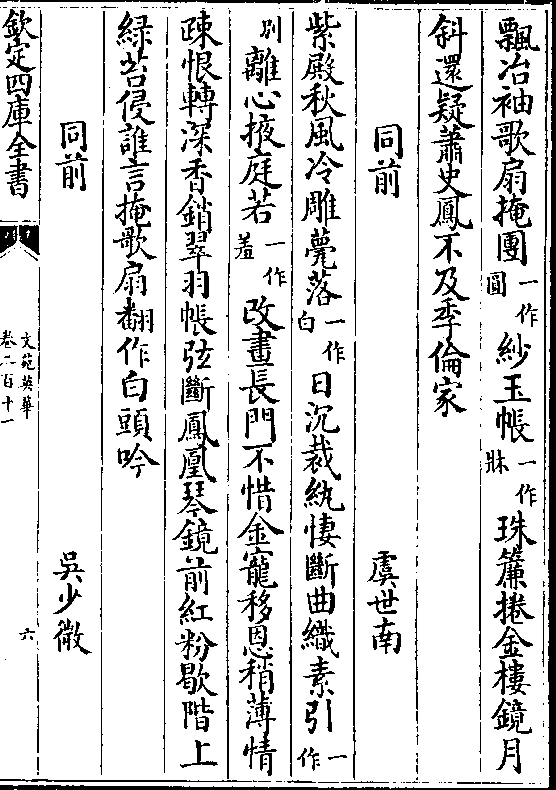 飄冶袖歌扇掩團一作圓紗玉帳一作牀珠簾捲金樓鏡月
斜還疑蕭史鳳不及季倫家
同前 虞世南
紫殿秋風冷雕甍落一作白日沉裁紈悽斷曲織素引一作
别離心掖庭若一作羞改畫長門不惜金寵移恩稍薄情
疎恨轉深香銷翠羽帳弦斷鳳凰琴鏡前紅粉歇階上
緑苔侵誰言掩歌扇翻作白頭吟
同前 吳少微
欽定四庫全書
文苑英華
卷二百十一
六